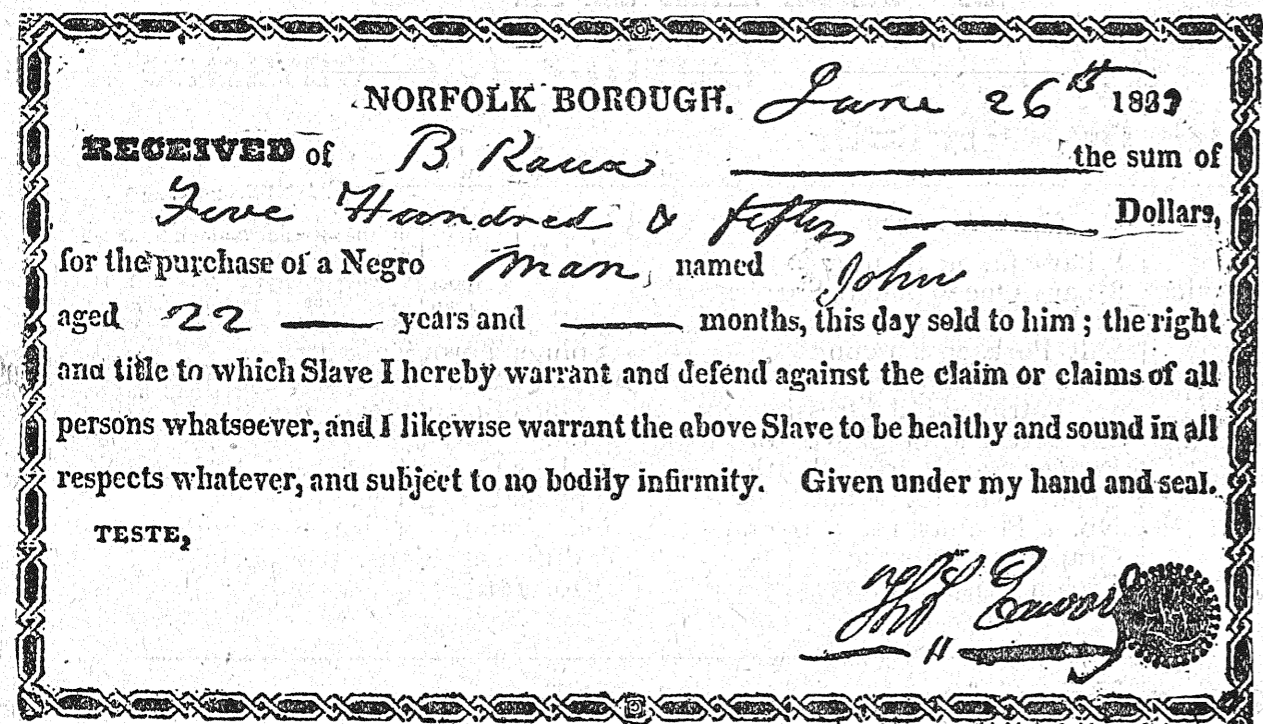 NORFOLK BOROUGH. June 26th 183
RECEIVED of B the sum of
Five Hundred & fifty Dollars,
for the purchase of a Negro man, named John
aged 22 years and months, this day sold to him; the right
and title to which Slave I hereby warrant and defend against the claim or claims of all
persons whatsoever, and I likewise warrant the above Slave to be healthy and sound in all
respects whatever, and subject to no bodily infirmity. Given under my hand and seal.
TESTE,
Thos